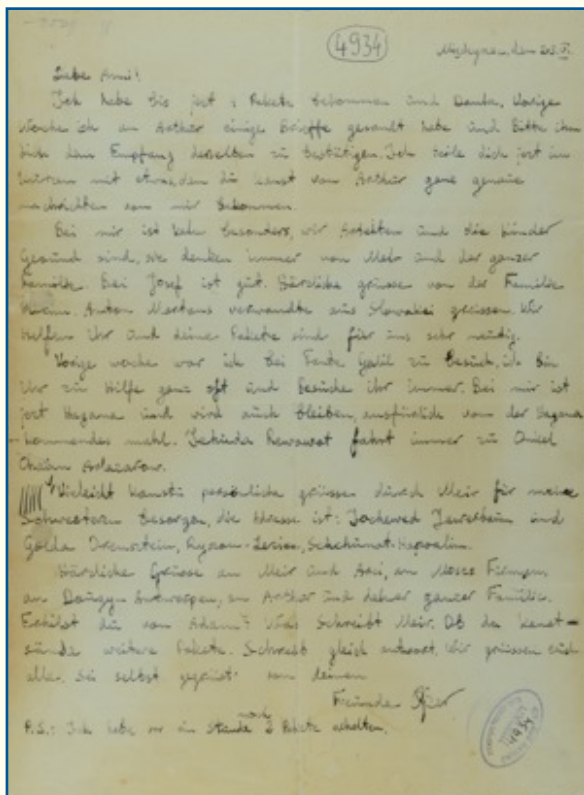 4934
den
Liebe
Ich habe bis jezt Pakete bekommen und Danke, Vorige
Woche ich an Arthur einige Brieffe gesamlt habe und Bitte ihm
den Empfang derselben zu bestätigen. Ich teile dich jezt im
kürzen mit etwas, den du kanst von Arthur ganz genaue
nachrichten von mir bekommen.
Bei mir ist kein besonders, wir Arbeiten und die kinder
Gesund sind, sie denken immer von Meir und der ganzer
Familie. Bei Josef ist gut. Härzliche grüsse von der Familie
Anton Mertens verwandte aus Slowakei grüssen. Wir
Helfen ihr und deine Pakete sind für uns sehr nöutig.
Vorige woche war ich bei Tante Galil zu besuch, ich bin
ihr zu Hilfe ganz oft und besuche ihr immer. Bei mir ist
jezt Hagana und wird auch bleiben, ausfürlich von der Hagana
kommendes mahl. Jehuda Rewawot fahrt immer zu Onkel
Chaim Arlazarow.
Vieleicht kanstu persönliche grüsse durch Meir für meine
Schwestern besorgen, die Adresse ist: Jochewed und
Golda Orenstein, Ryszon-Lezion, Schechunat-Hapoalim.
Härzliche Grüsse an Meir und an Mosze
an Antwerpen, an Arthur und deiner ganzer Familie.
Erhälst du von Adam? Was Schreibt Meir. Ob du kanst-
sände weitere Pakete. Schreib gleich antwort. Wir grüssen euch
alle. Sei selbst gegrüst von deinen
Freunde
P.S.: Ich habe vor ein Stunde noch 2 Pakete erhalten.